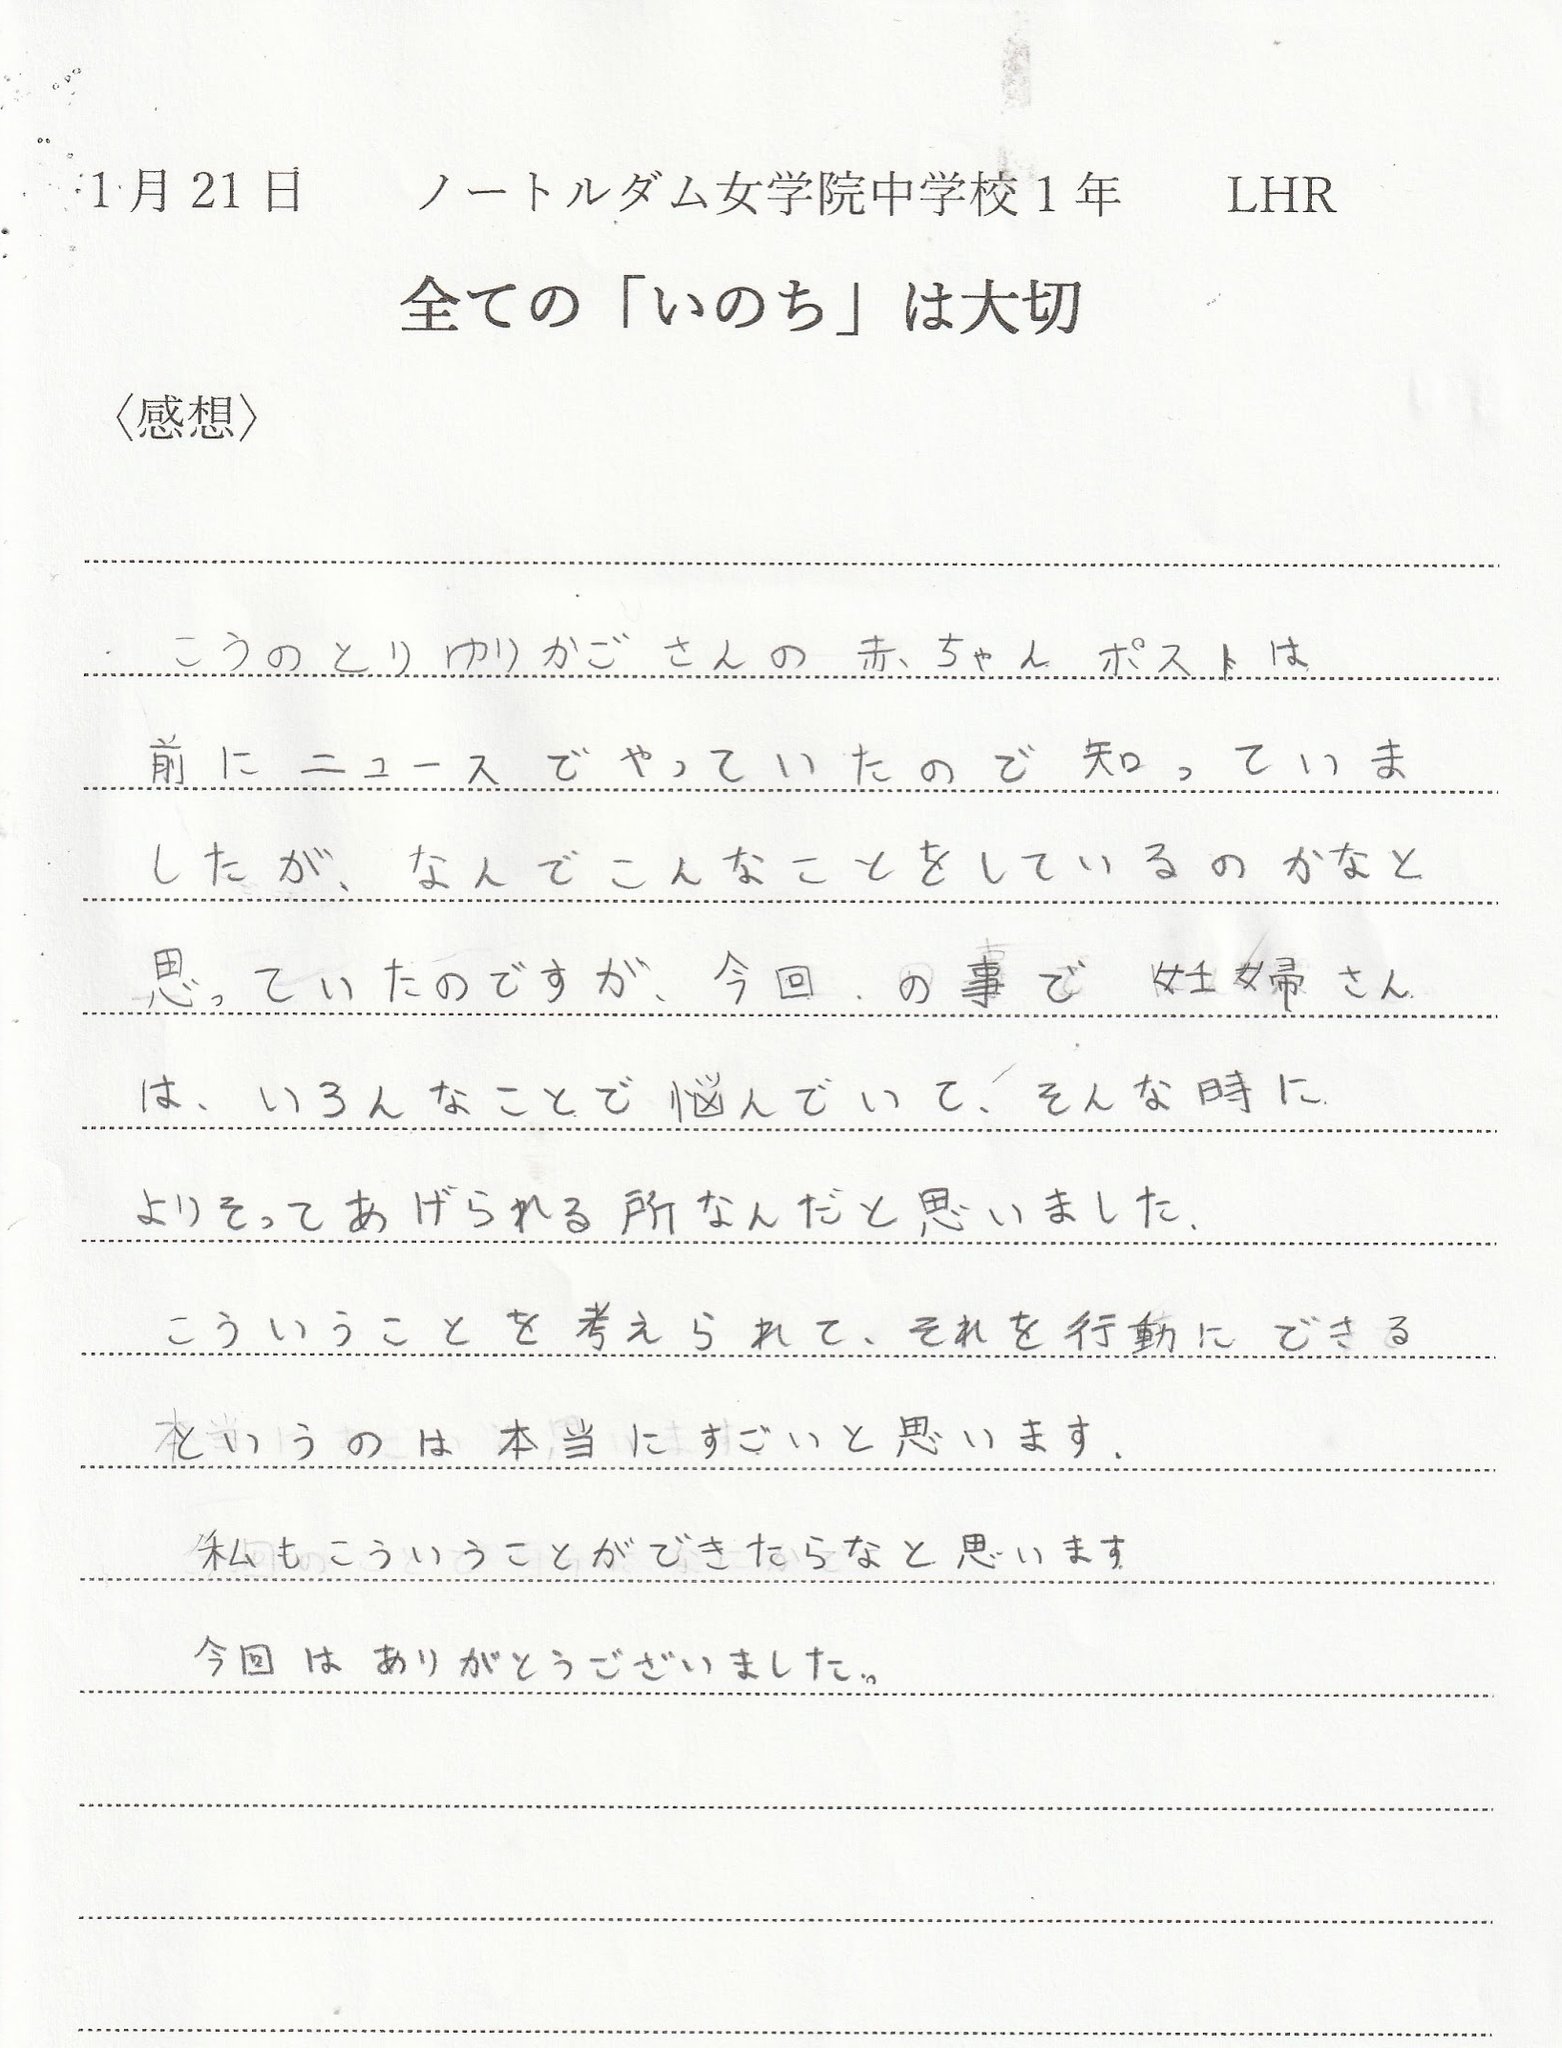 1月21日　ノートルダム女学院中学校1年　LHR
全ての「いのち」は大切
〈感想〉
こうのとりゆりかごさんの赤ちゃんポストは
前にニュースでやっていたので知っていま
したが、なんでこんなことをしているのかなと
思っていたのですが、今回の事で妊婦さん
は、いろんなことで悩んでいて、そんな時に
よりそってあげられる所なんだと思いました。
こういうことを考えられて、それを行動にできる
というのは本当にすごいと思います。
私もこういうことができたらなと思います
今回はありがとうございました。